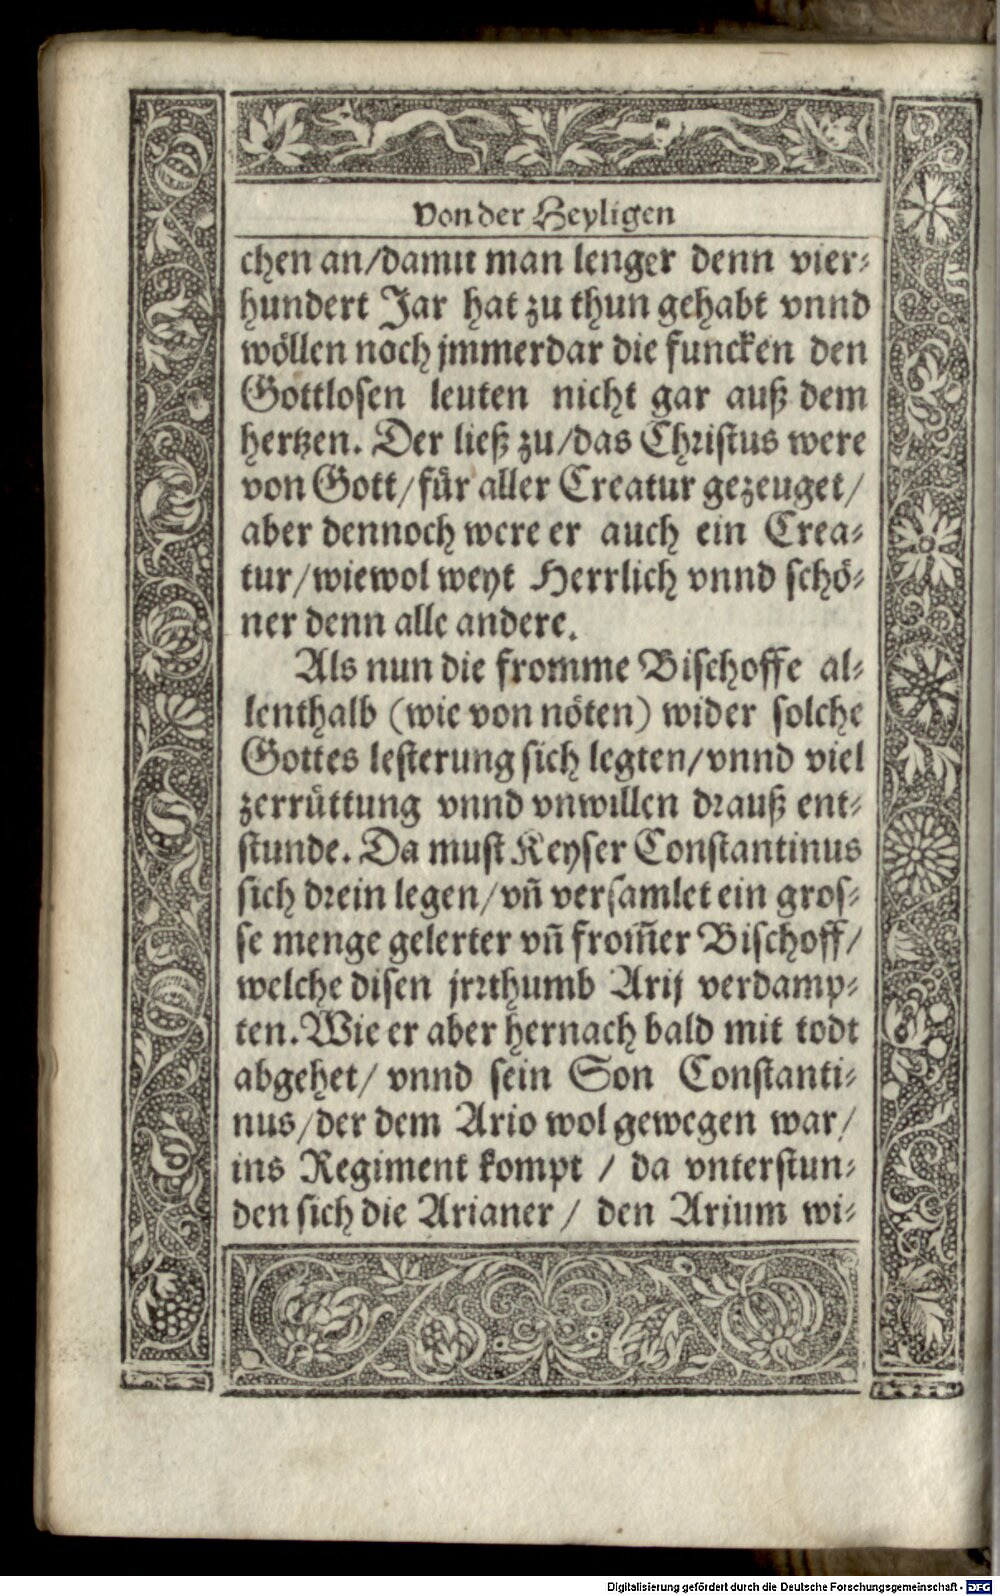 Von der Heyligen
chen an/damit man lenger denn vier⸗
hundert Jar hat zu thun gehabt vnnd
wöllen noch jmmerdar die funcken den
Gottlosen leuten nicht gar auß dem
hertzen. Der ließ zu/das Christus were
von Gott/fuͤr aller Creatur gezeuget/
aber dennoch were er auch ein Crea⸗
tur/wiewol weyt Herrlich vnnd schö⸗
ner denn alle andere.
Als nun die fromme Bischoffe al⸗
lenthalb (wie von nöten) wider solche
Gottes lesterung sich legten/vnnd viel
zerruͤttung vnnd vnwillen drauß ent⸗
stunde. Da must Keyser Constantinus
sich drein legen/vn̄ versamlet ein gros⸗
se menge gelerter vn̄ from̄er Bischoff/
welche disen jrrthumb Arij verdamp⸗
ten. Wie er aber hernach bald mit todt
abgehet/ vnnd sein Son Constanti⸗
nus/der dem Ario wol gewegen war/
ins Regiment kompt / da vnterstun⸗
den sich die Arianer / den Arium wi⸗
Digitalisierung gefördert durch die Deutsche Forschungsgemeinschaft - DFG